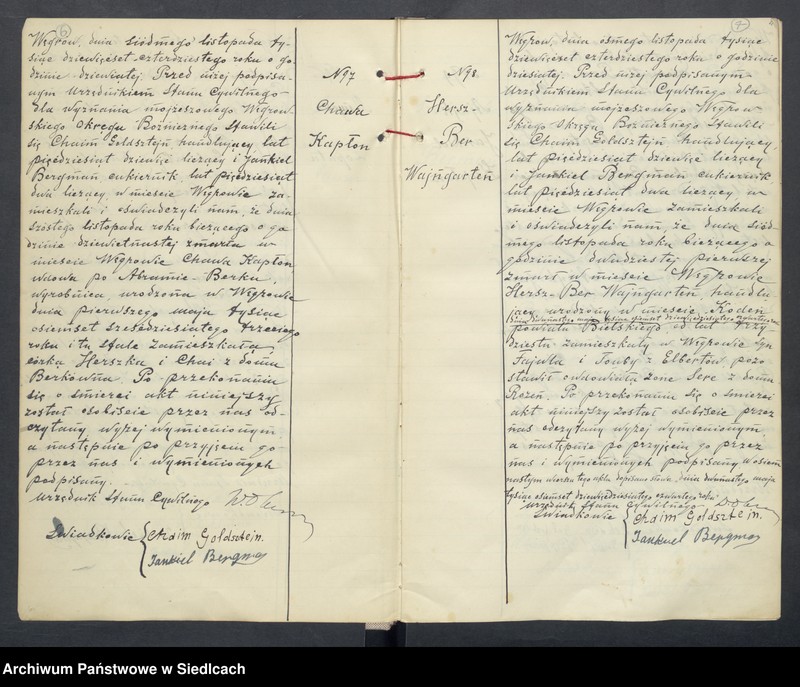 6
Węgrów, dnia siódmego listopada ty-
siąc dziewięćset czterdziestego roku o go
dzinie dziewiątej. Przed niżej podpisa-
nym Urzędnikiem Stanu Cywilnego
dla wyznania mojżeszowego Węgrow-
skiego Okręgu Bożniczego stawili
się Chaim Goldsztejn handlujący lat
pięćdziesiąt dziewięć liczący i Jankiel
Bergman cukiernik lat pięćdziesiąt
dwa liczący, w mieście Węgrowie za-
mieszkali i oświadczyli nam, że dnia
szóstego listopada roku bieżącego o go
dzinie dziewiętnastej zmarła w
mieście Węgrowie Chawa Kapłon
wdowa po Abramie-Berku,
wyrobnica, urodzona w Węgrowie
dnia pierwszego maja tysiąc
osiemset sześćdziesiątego trzeciego
roku i tu stale zamieszkała,
córka Herszka i Chai z domu
Berkówna. Po przekonaniu
się o śmierci akt niniejszy
został osobiście przez nas od-
czytany wyżej wymienionym,
a następnie po przyjęciu go
przez nas i wymienionych
podpisany.
Urzędnik Stanu Cywilnego
Świadkowie Chaim Goldsztein.
Jankiel Bergman
N97
Chawa
Kapłon
N98
Hersz-
Ber
Wajngarten
Węgrów, dnia ósmego listopada tysiąc
dziewięćset czterdziestego roku o godzinie
dziesiątej. Przed niżej podpisanym
Urzędnikiem Stanu Cywilnego dla
wyznania mojżeszowego Węgrow-
skiego Okręgu Bożniczego stawili
się Chaim Goldsztejn handlujący,
lat pięćdziesiąt dziewięć liczący
i Jankiel Bergman cukiernik
lat pięćdziesiąt dwa liczący, w
mieście Węgrowie zamieszkali
i oświadczyli nam, że dnia siód-
mego listopada roku bieżącego o
godzinie dwudziestej pierwszej
zmarł w mieście Węgrowie
Hersz-Ber Wajngarten, handlu-
jący, urodzony w mieście Kodeń
dnia dwunastego maja tysiąc osiemset dziewięćdziesiątego czwartego roku
powiatu Bielskiego od lat trzy-
dziestu zamieszkały w Węgrowie syn
Fajwla i Tauby z Elbertów pozo
stawił owdowiałą żonę Serę z domu
Rozen. Po przekonaniu się o śmierci
akt niniejszy został osobiście przez
nas odczytany wyżej wymienionym,
a następnie po przyjęciu go przez
nas i wymienionych podpisany. W osiem
nastym wierszu tego aktu dopisano słowa: dnia dwunastego maja
tysiąc osiemset dziewięćdziesiątego czwartego roku
Urzędnik Stanu Cywilnego
Świadkowie Chaim Goldsztein.
Jankiel Bergman
Archiwum Państwowe w Siedlcach